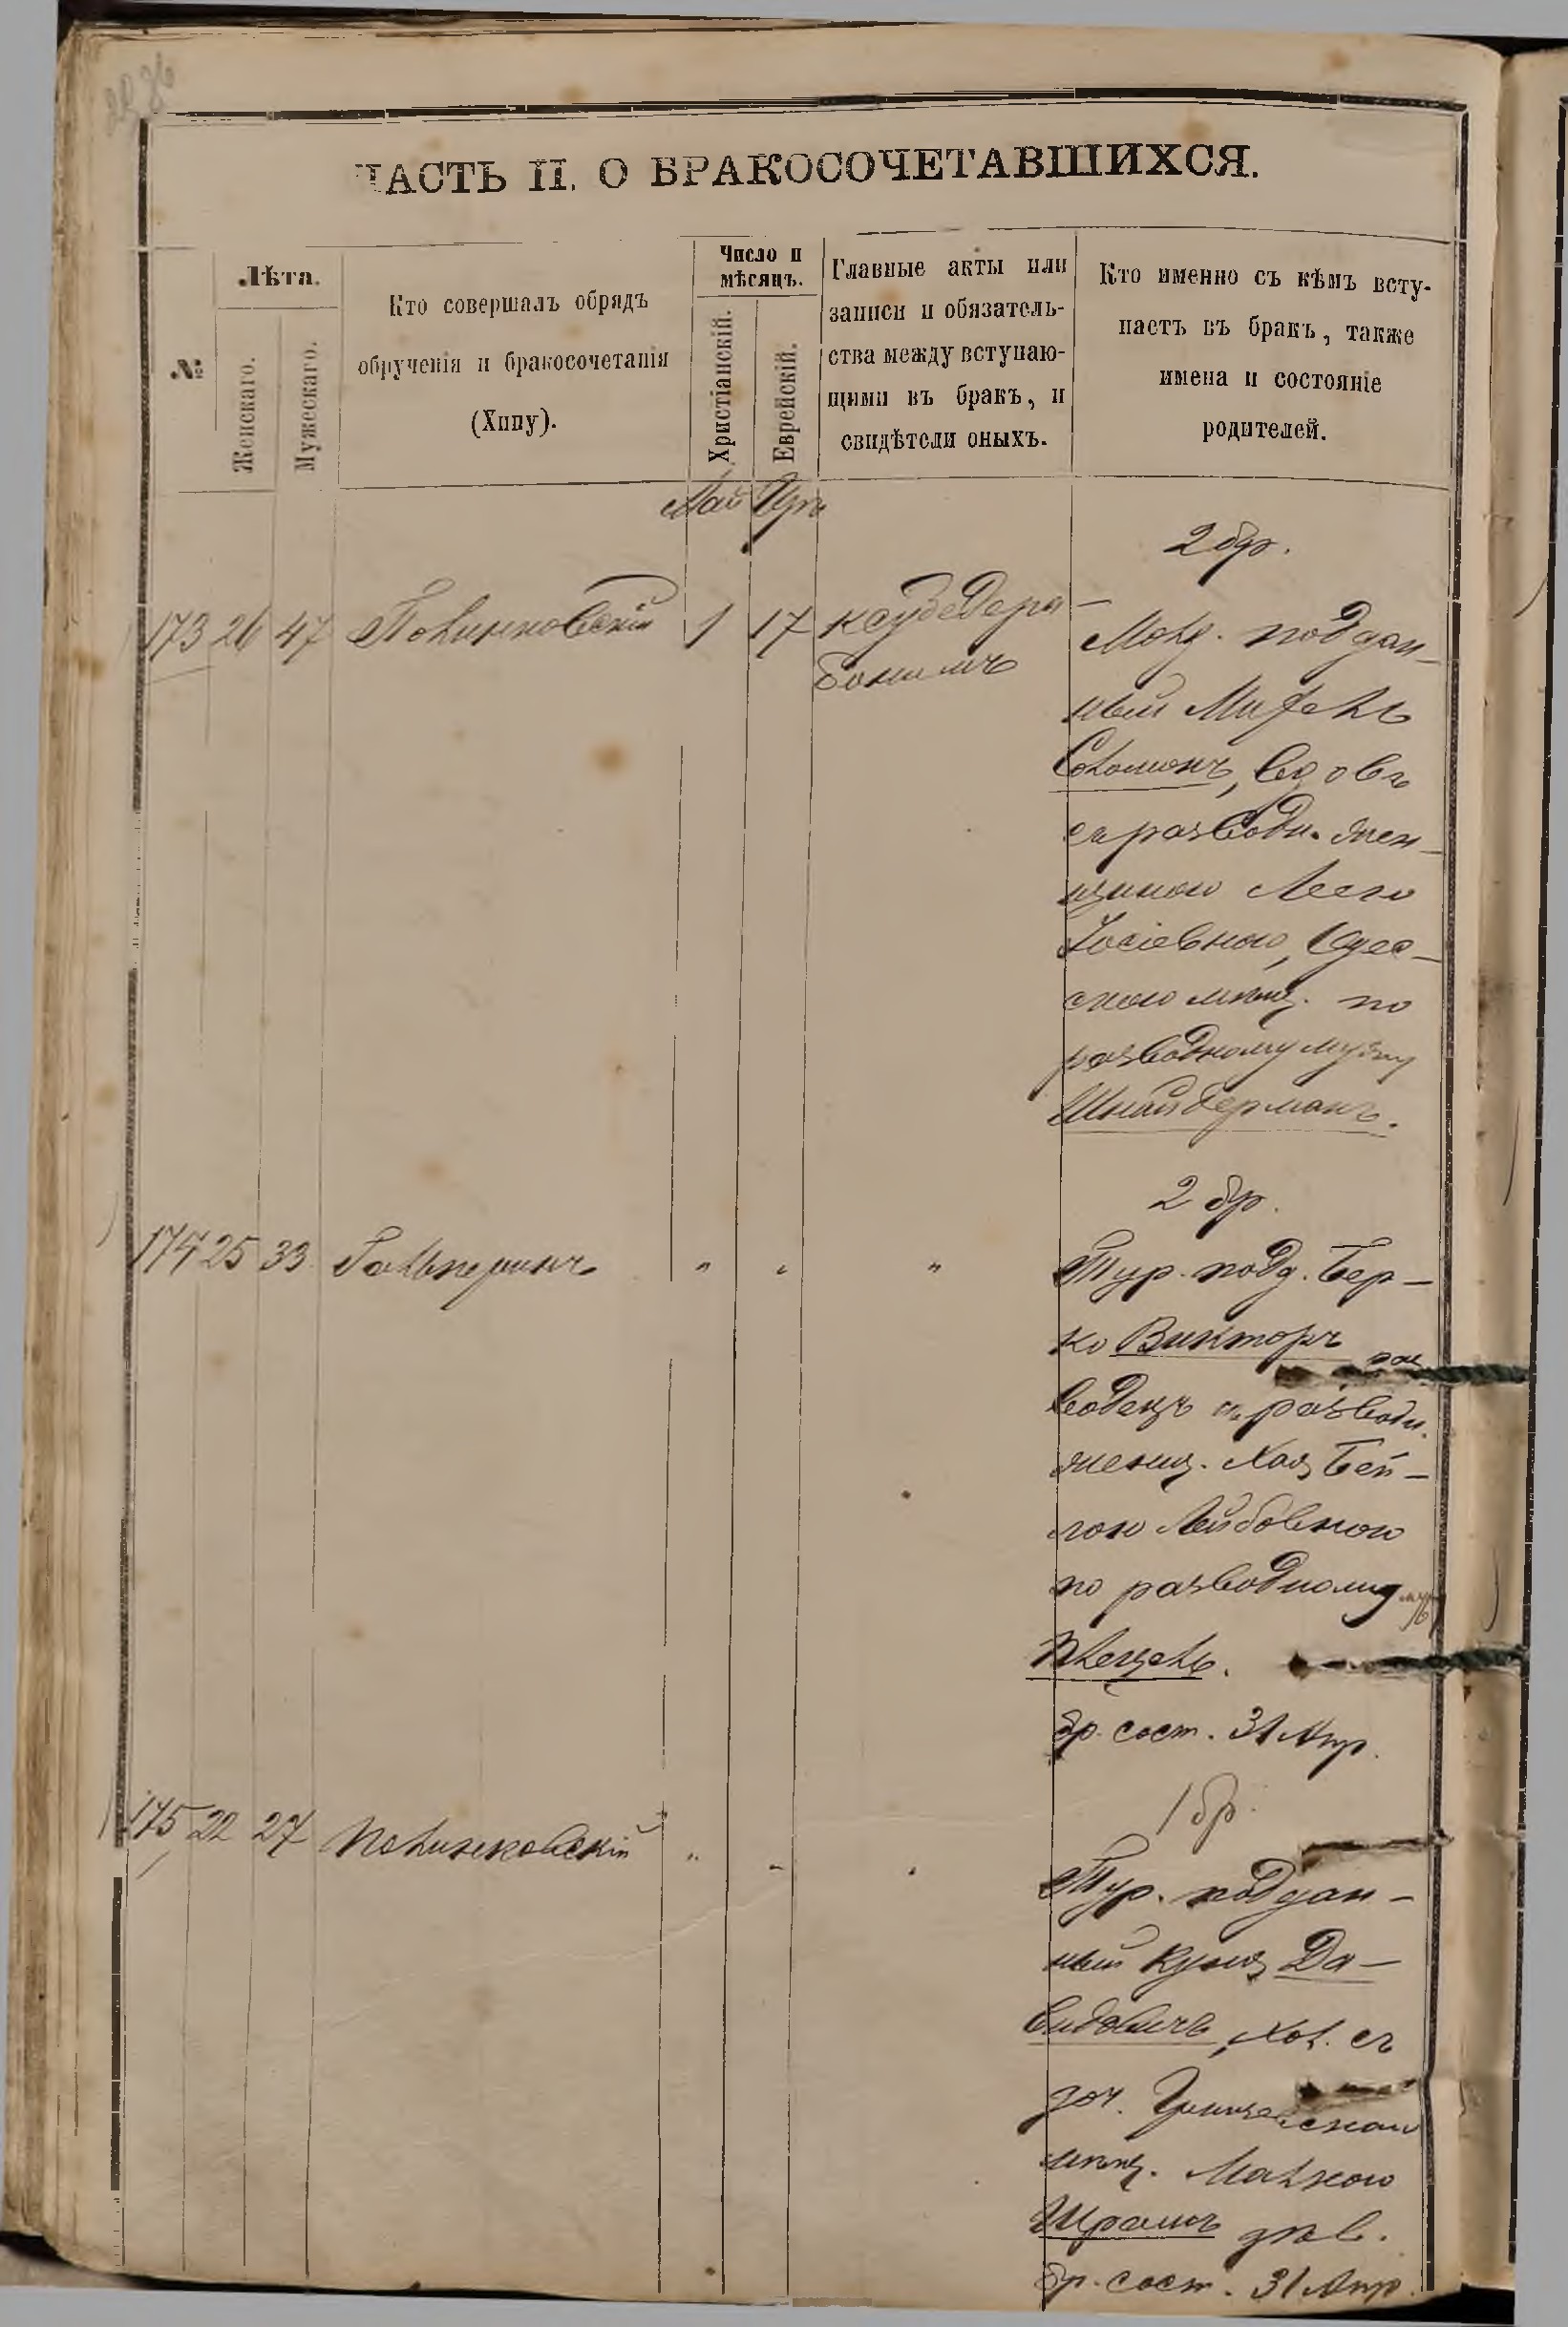 ЧАСТЬ II. О БРАКОСОЧЕТАВШИХСЯ.
№
Лѣта.
Женскаго.
Мужескаго.
Кто совершалъ обрядъ
обрученія и бракосочетанія
(Хипу).
Число и
мѣсяцъ.
Христіанскій.
Еврейскій.
Главные акты или
записи и обязатель-
ства между вступаю-
щими въ бракъ, и
свидѣтели оныхъ.
Кто именно съ кѣмъ всту-
паетъ въ бракъ, также
имена и состояніе
родителей.
Май Иръ
2 бр.
173 26 47 Полинковскій 1 17
Молд. поддан-
ный Михель
Соломонъ, вдовъ
съ разводн. жен-
щиною Лею
Іосіевною, Одес-
скою мѣщ. по
разводному мужу
Шнайдерманъ.
2 бр.
174 25 33 Гальперинъ " " "
Тур. подд. Бер-
ко Викторъ раз
водецъ съ разводн.
женщ. Хая Бей-
лою Лейбовною
по разводному муж
Плецель.
бр. сост. 31 Апр.
1 бр.
175 22 27 Полинковскій " " "
Тур. поддан-
ный Куна Да-
видовичъ, хол. съ
доч.
мѣщ. Малкою
Шрамъ дѣв.
бр. сост. 31 Апр.